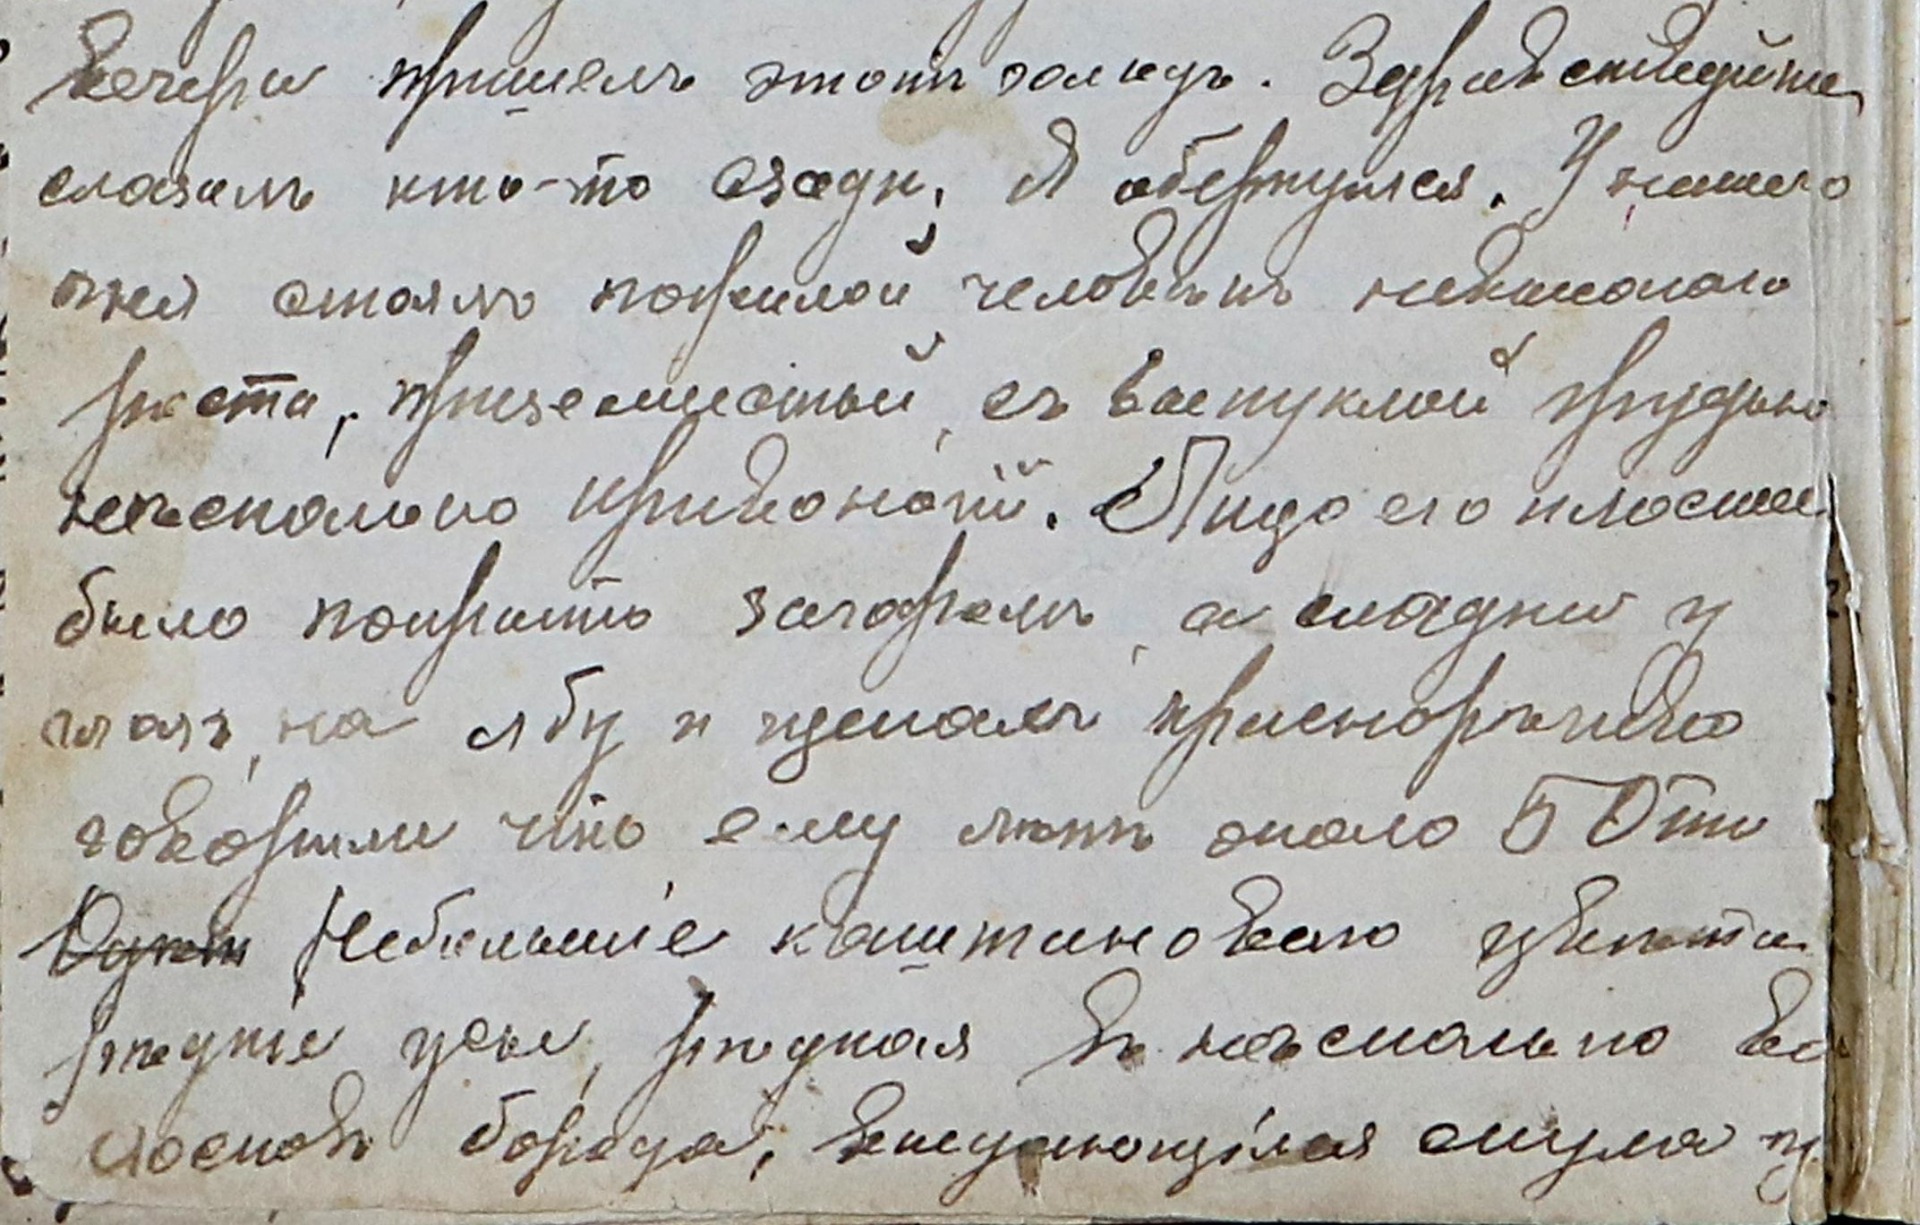 вечера пришелъ этотъ гольдъ. Здравствуйте
сказалъ кто-то сзади. Я обернулся. У нашего
огня стоялъ пожилой человѣкъ невысокаго
роста, приземистый, съ выпуклой грудью
нѣсколько кривоногій. Лицо его плоское
было покрыто загаромъ, а складки у
глазъ, на лбу и щекахъ краснорѣчиво
говорили что ему лѣтъ около 50ти
Небольшіе каштановаго цвѣта
рѣдкіе усы, рѣдкая въ нѣсколько во
лосковъ борода, выдающіяся скулы